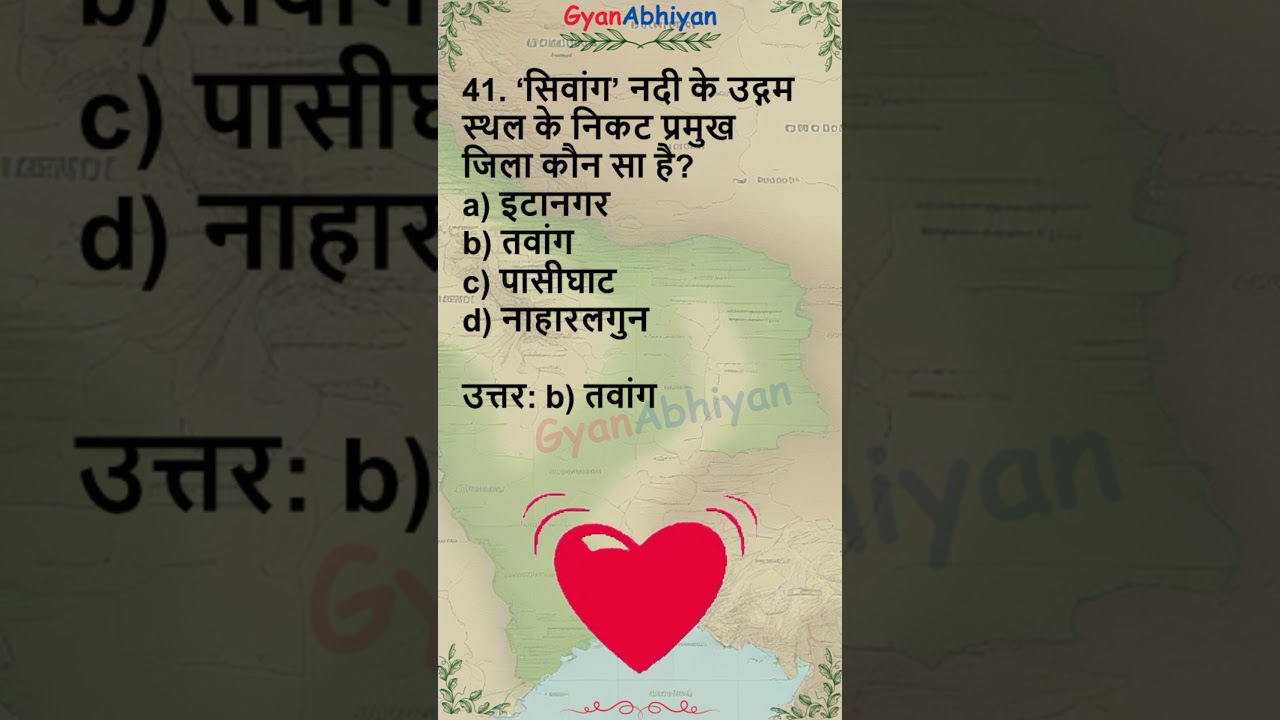 GyanAbhiyan
41. ‘सिवांग’ नदी के उद्गम
स्थल के निकट प्रमुख
जिला कौन सा है?
a) इटानगर
b) तवांग
c) पासीघाट
d) नाहारलगुन
उत्तर: b) तवांग
GyanAbhiyan